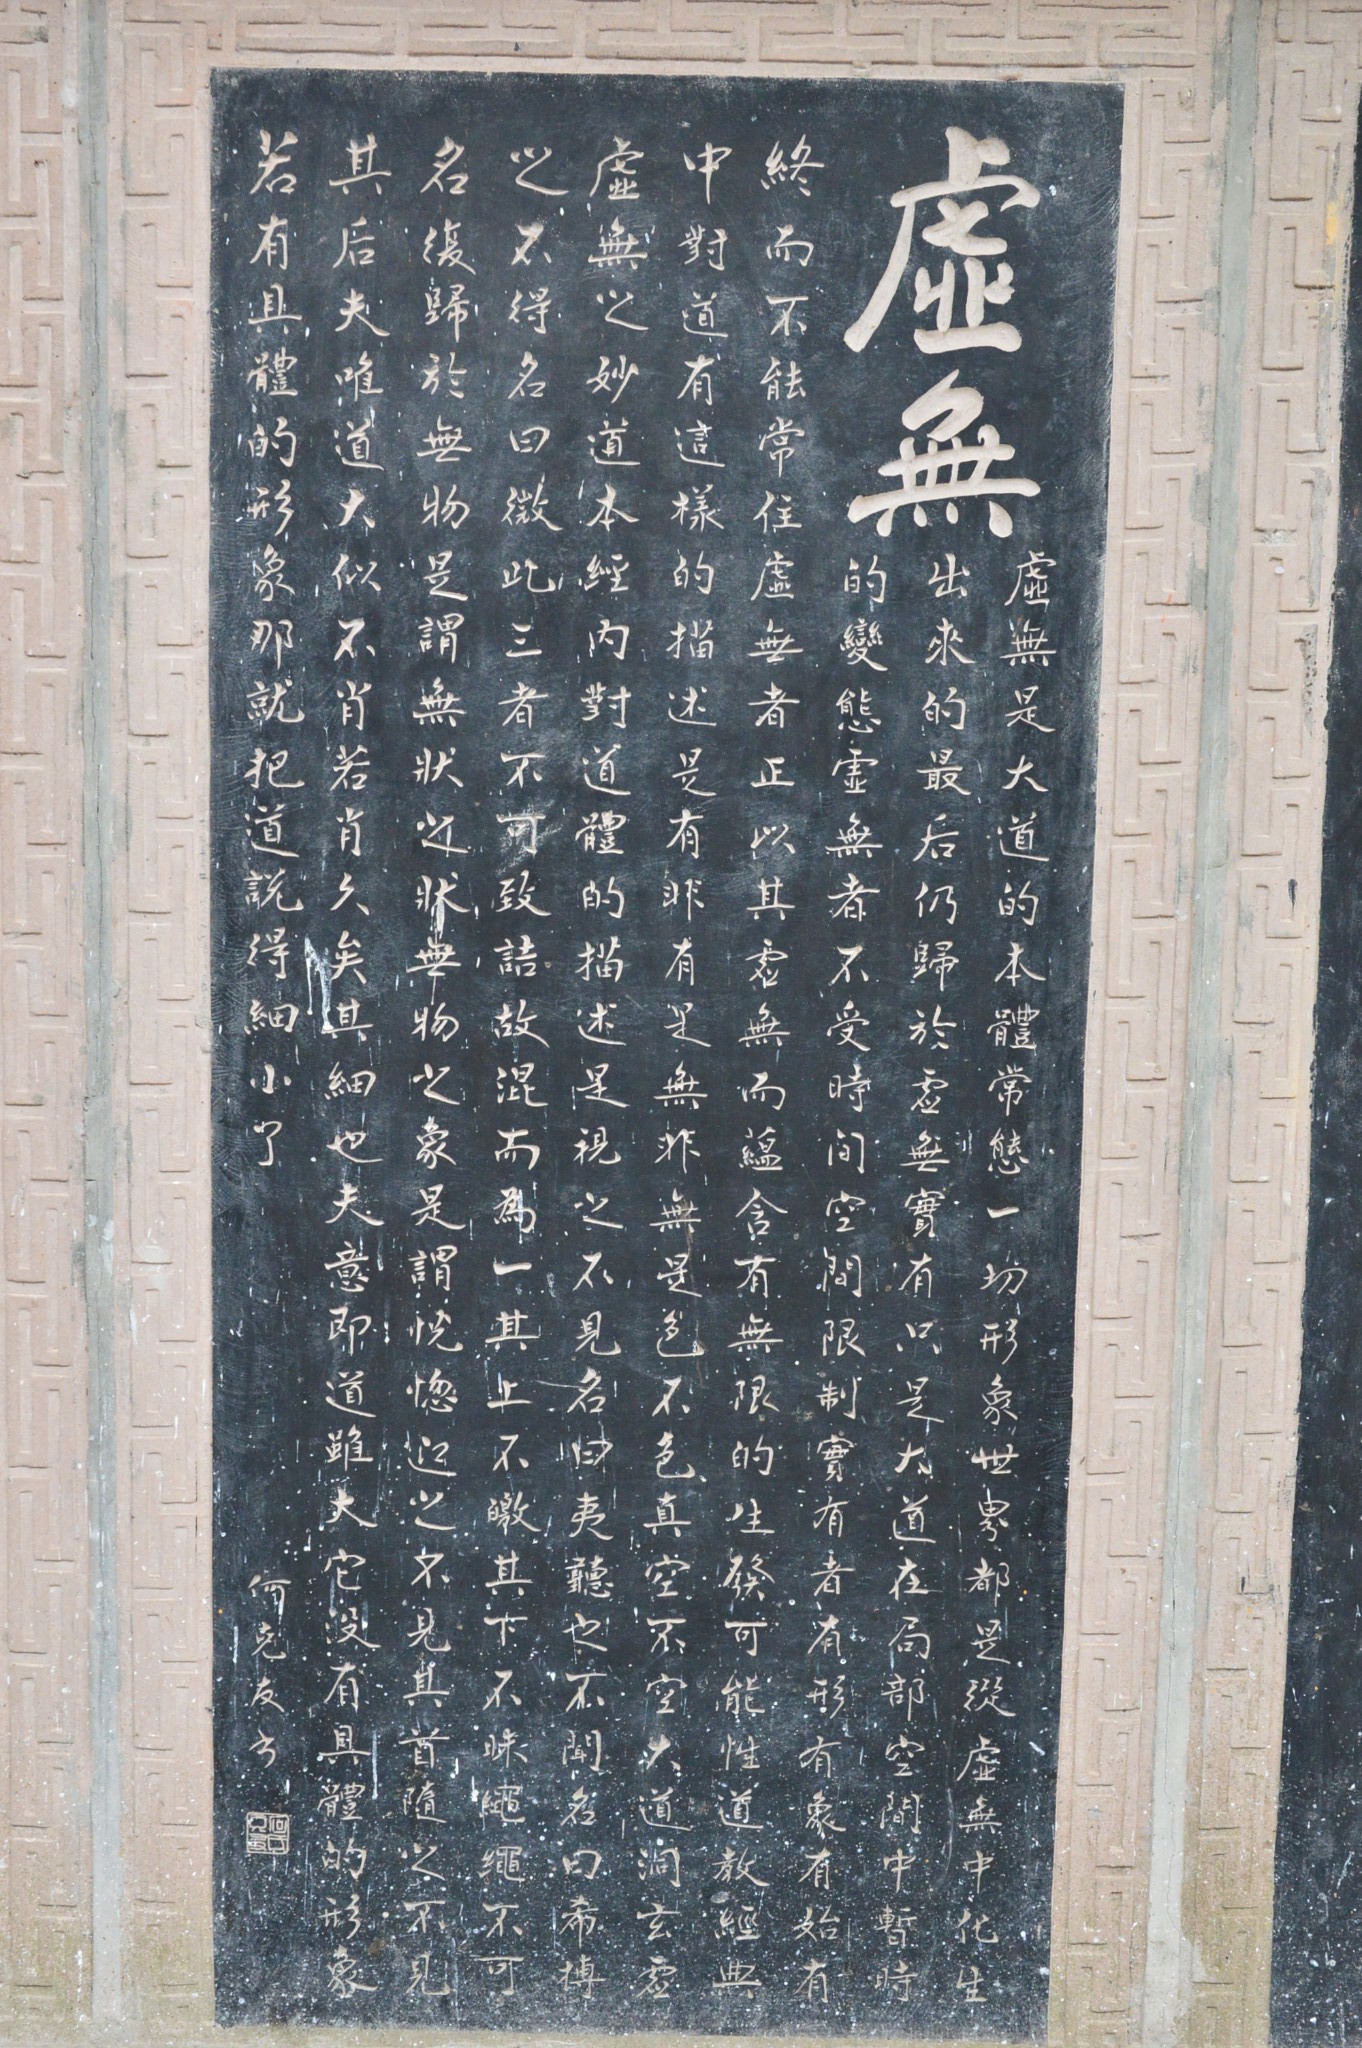 虛無
虛無是大道的本體常態一切形象世界都是從虛無中化生
出來的最后仍歸於虛無實有只是大道在局部空間中暫時
的變態虛無者不受時间空間限制實有者有形有象有始有
終而不能常住虛無者正以其虛無而蘊含有無限的生發可能性道教經典
中對道有這樣的描述是有非有是無非無是色不色真空不空大道洞玄虛
虛無之妙道本經內對道體的描述是視之不見名曰夷聽之不聞名曰希搏
之不得名曰微此三者不可致詰故混而為一其上不皦其下不昧繩繩不可
名復歸於無物是謂無狀之狀無物之象是謂恍惚迎之不見其首隨之不見
其后夫唯道大似不肖若肖久矣其細也夫意即道雖大它没有具體的形象
若有具體的形象那就把道説得細小了
何克友书